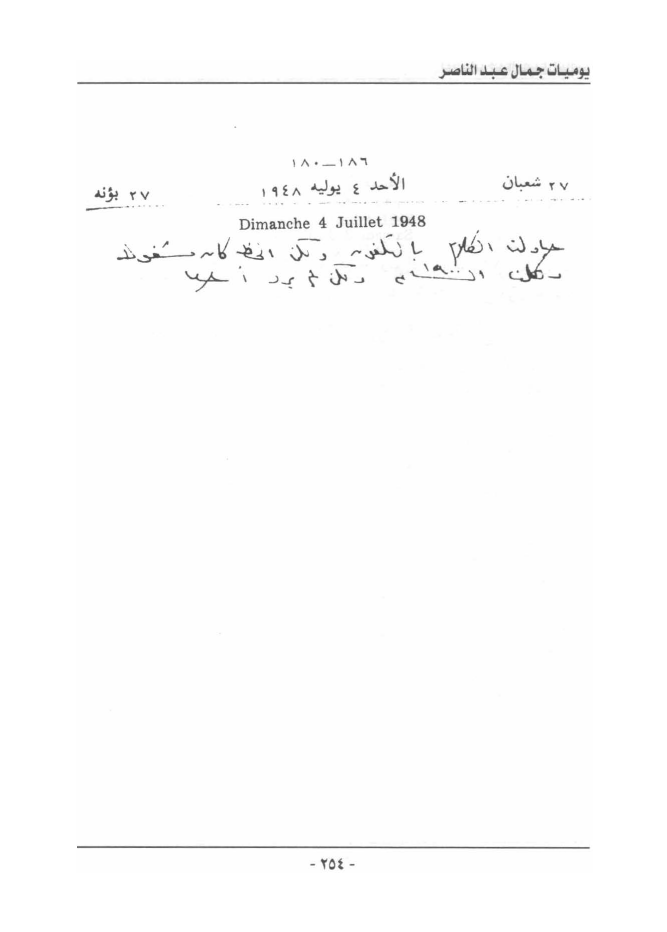 يوميات جمال عبد الناصر
١٨٦—١٨٠
٢٧ شعبان الأحد ٤ يوليه ١٩٤٨ ٢٧ بؤنه
Dimanche 4 Juillet 1948
حاولت الكلام بالتلفون ولكن الخط كان مشغول
ولكن لم يرد
- ٢٥٤ -